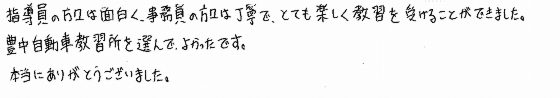 指導員の方々は面白く、事務員の方々は丁寧で、とても楽しく教習を受けることができました。
豊中自動車教習所を選んで、よかったです。
本当にありがとうございました。